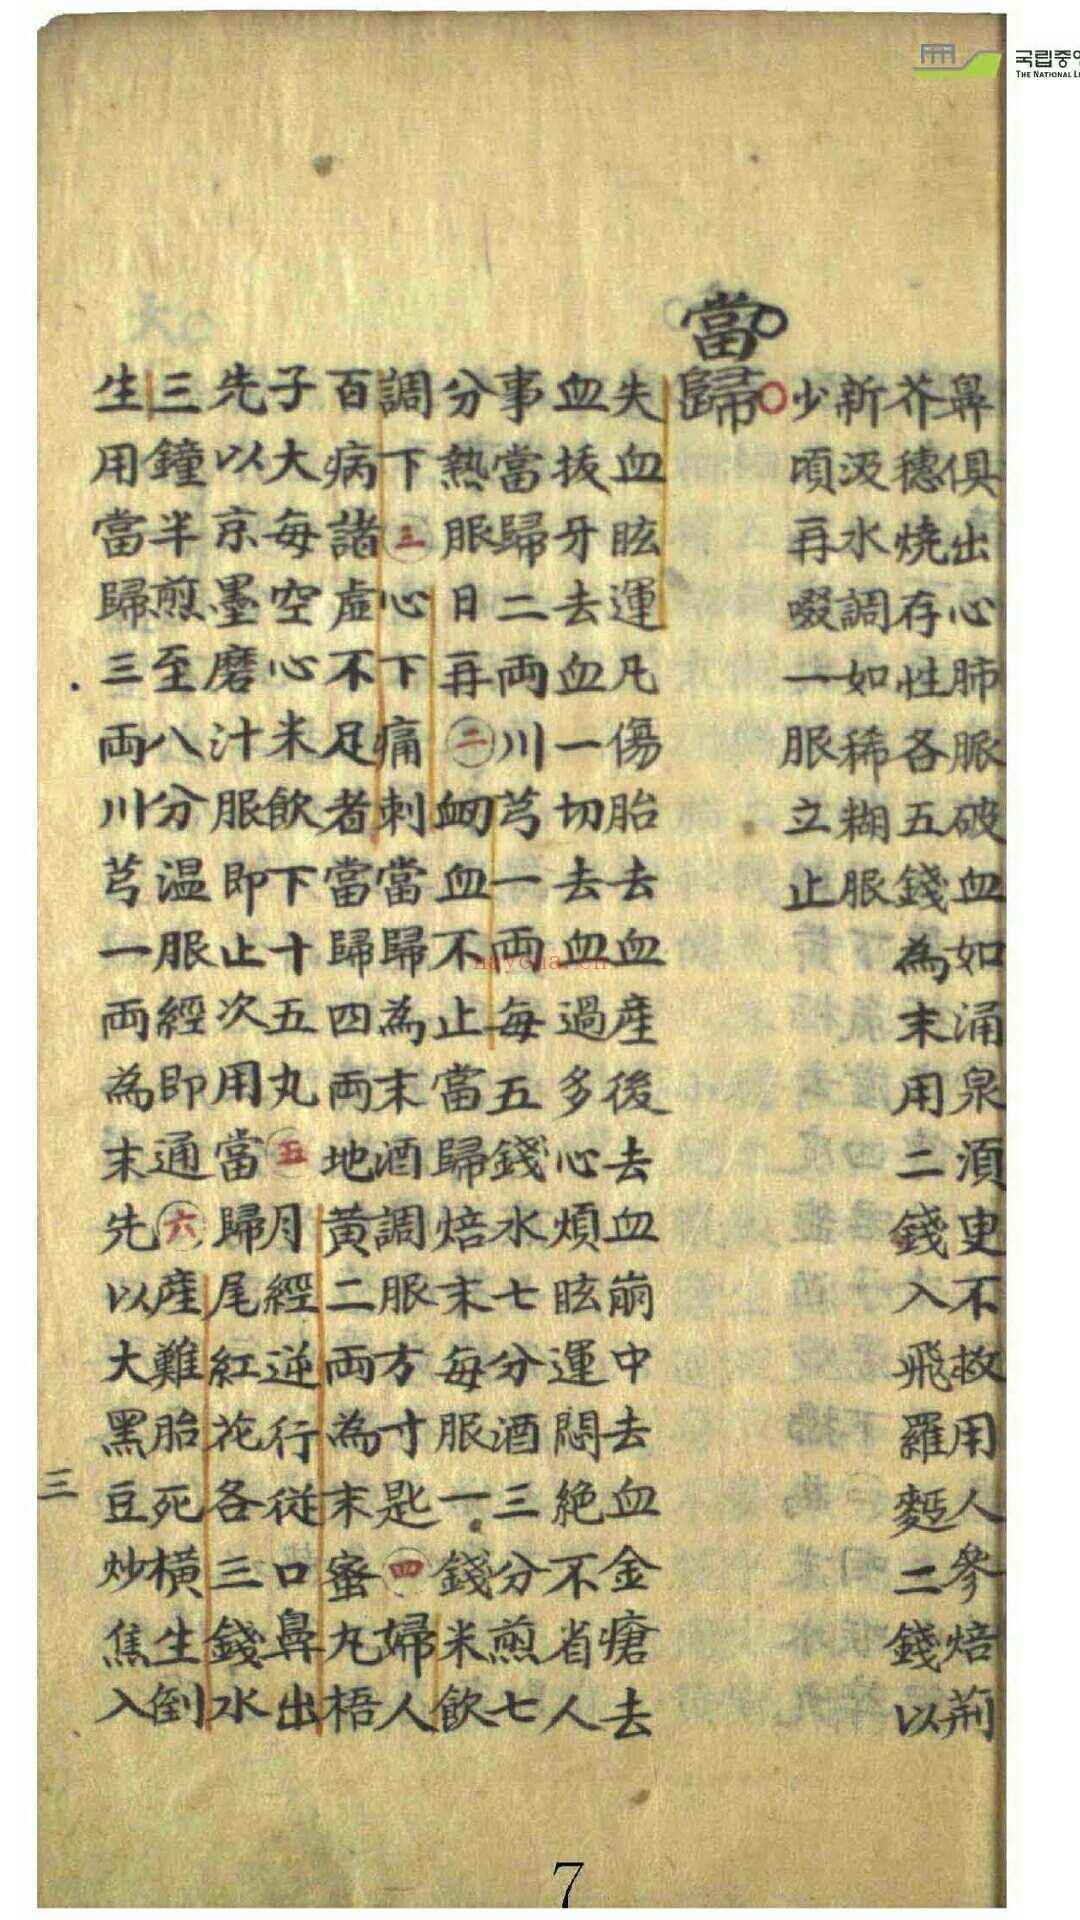 국립중앙
THE NATIONAL LI
鼻俱出心肺脈破血如涌泉湏臾不救用人參焙荊
芥穗燒存性各五錢為末用二錢入飛羅麫二錢以
新汲水調如稀糊服
少頃再啜一服立止
當歸
失血眩運凡傷胎去血産後去血崩中去血金瘡去
血拔牙去血一切去血過多心煩眩運悶絶不省人
事當歸二兩川芎一兩每五錢水七分酒三分煎七
分熱服日再 二 衄血不止當歸焙末每服一錢米飲
調下 三 心下痛刺當歸為末酒調服方寸匙 四 婦人
百病諸虛不足者當歸四兩地黄二兩為末蜜丸梧
子大每空心米飲下十五丸 五 月經逆行従口鼻出
先以京墨磨汁服即止次用當歸尾紅花各三錢水
三鐘半煎至八分温服經即通 六 産難胎死橫生倒
生用當歸三兩川芎一兩為末先以大黑豆炒焦入
三
nayona.cn
7